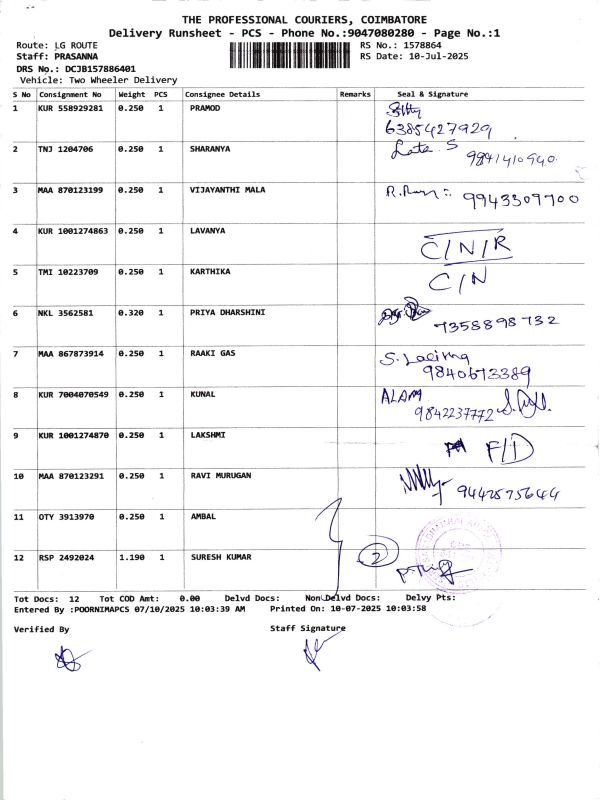 THE PROFESSIONAL COURIERS, COIMBATORE
Delivery Runsheet - PCS - Phone No.:9047080280 - Page No.:1
Route: LG ROUTE RS No.: 1578864
Staff: PRASANNA RS Date: 10-Jul-2025
DRS No.: DCJB157886401
Vehicle: Two Wheeler Delivery
S No Consignment No Weight PCS Consignee Details Remarks Seal & Signature
1 KUR 558929281 0.250 1 PRAMOD
6385427929
2 TNJ 1204706 0.250 1 SHARANYA Lata. S 9841410940
3 MAA 870123199 0.250 1 VIJAYANTHI MALA 9943309700
4 KUR 1001274863 0.250 1 LAVANYA C/N/R
5 TMI 10223709 0.250 1 KARTHIKA C/N
6 NKL 3562581 0.320 1 PRIYA DHARSHINI 7358898732
7 MAA 867873914 0.250 1 RAAKI GAS S.
9840673389
8 KUR 7004070549 0.250 1 KUNAL ALAM
9842237772
9 KUR 1001274870 0.250 1 LAKSHMI F/D
10 MAA 870123291 0.250 1 RAVI MURUGAN 9442875644
11 OTY 3913970 0.250 1 AMBAL
12 RSP 2492024 1.190 1 SURESH KUMAR 2
Tot Docs: 12 Tot COD Amt: 0.00 Delvd Docs: Non Delvd Docs: Delvy Pts:
Entered By :POORNIMAPCS 07/10/2025 10:03:39 AM Printed On: 10-07-2025 10:03:58
Verified By Staff Signature